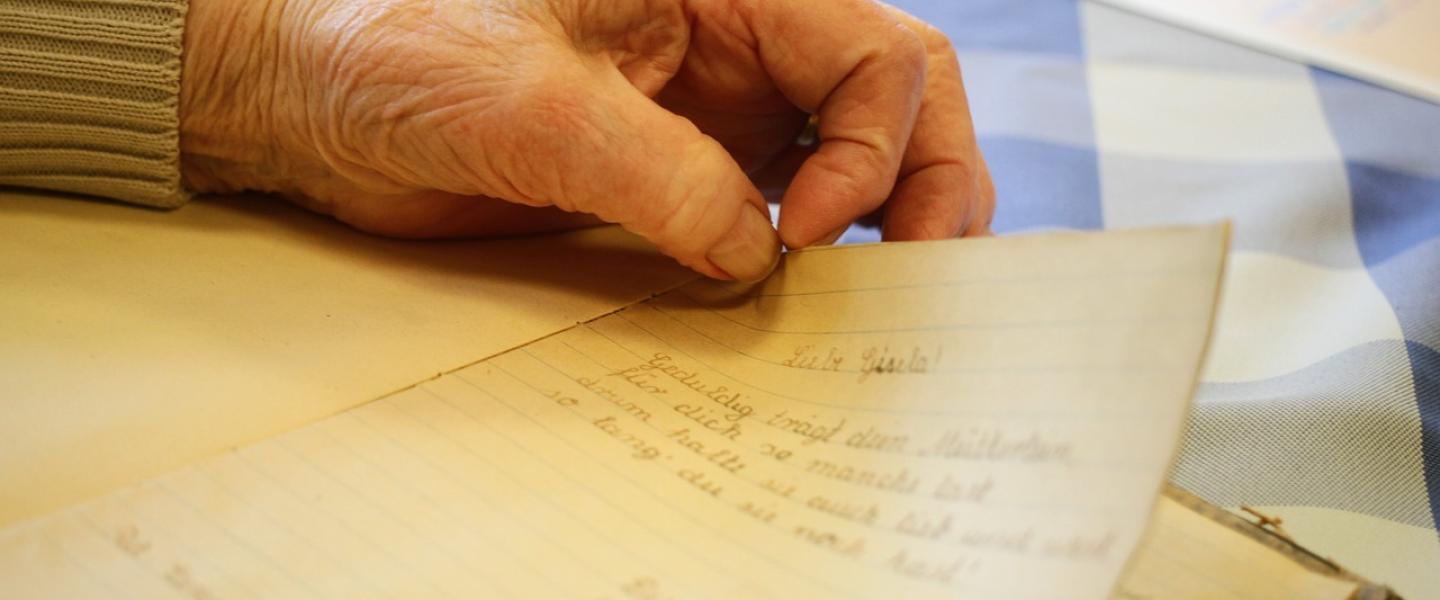 Liebe Gisela!
Geduldig trägt dein Mütterlein
für dich so manche Last
drum halte sie auch lieb und wert
so lang' du sie noch hast!